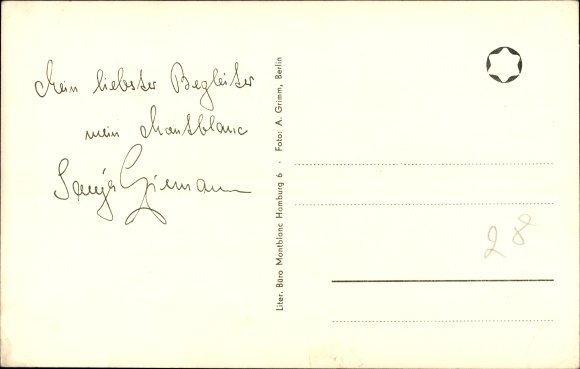 Mein liebster Begleiter
mein Montblanc
Sonja Ziemann
Liter. Büro Montblanc Hamburg 6 · Foto: A. Grimm, Berlin
28